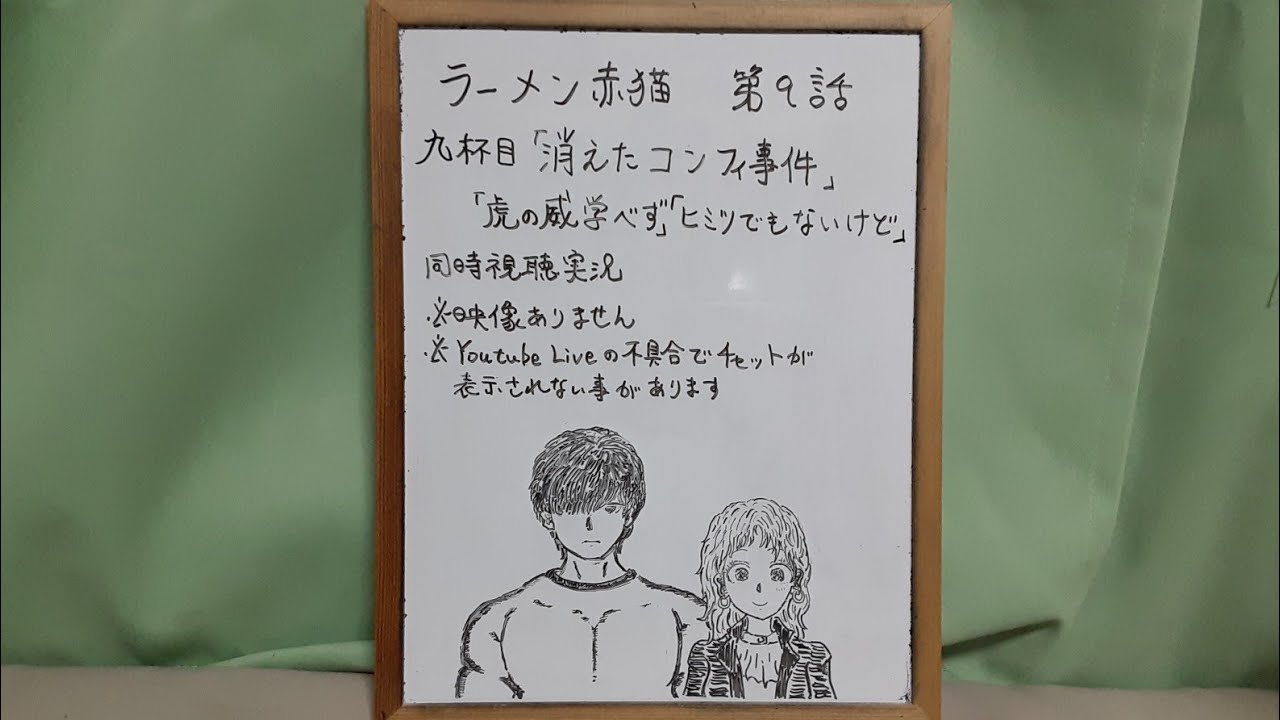 ラーメン赤猫 第9話
九杯目「消えたコンフィ事件」
「虎の威学べず」「ヒミツでもないけど」
同時視聴実況
※映像ありません
※Youtube Liveの不具合でチャットが
表示されない事があります